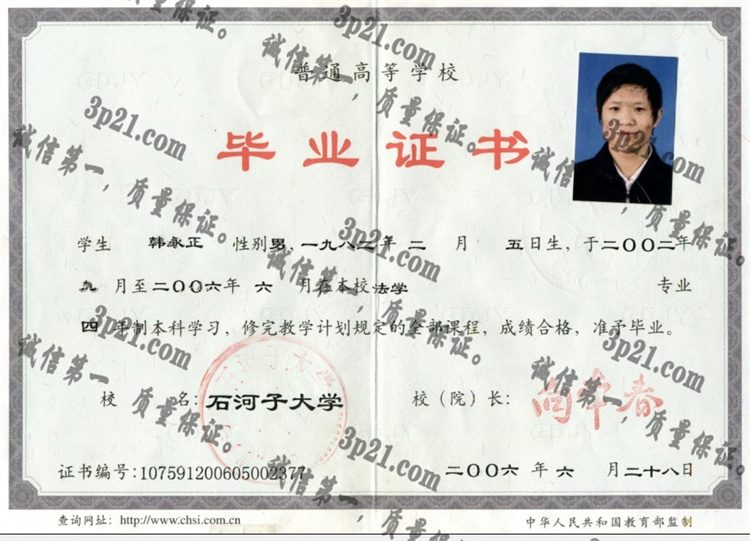 普通高等学校
毕业证书
学生 韩永正 性别男,一九八二年 二 月 五日生,于二〇〇二年
九 月至二〇〇六年 六 月在本校法学 专业
四 年制本科学习,修完教学计划规定的全部课程,成绩合格,准予毕业。
校 名:石河子大学 校(院)长:向本春
证书编号:107591200605002377 二〇〇六 年 六 月二十八日
查询网址:http://www.chsi.com.cn 中华人民共和国教育部监制
3p21.com
诚信第一,质量保证。
3p21.com
诚信第一,质量保证。
3p21.com
诚信第一,质量保证。
3p21.com
诚信第一,质量保证。
3p21.com
诚信第一,质量保证。
3p21.com
诚信第一,质量保证。
3p21.com
诚信第一,质量保证。
3p21.com